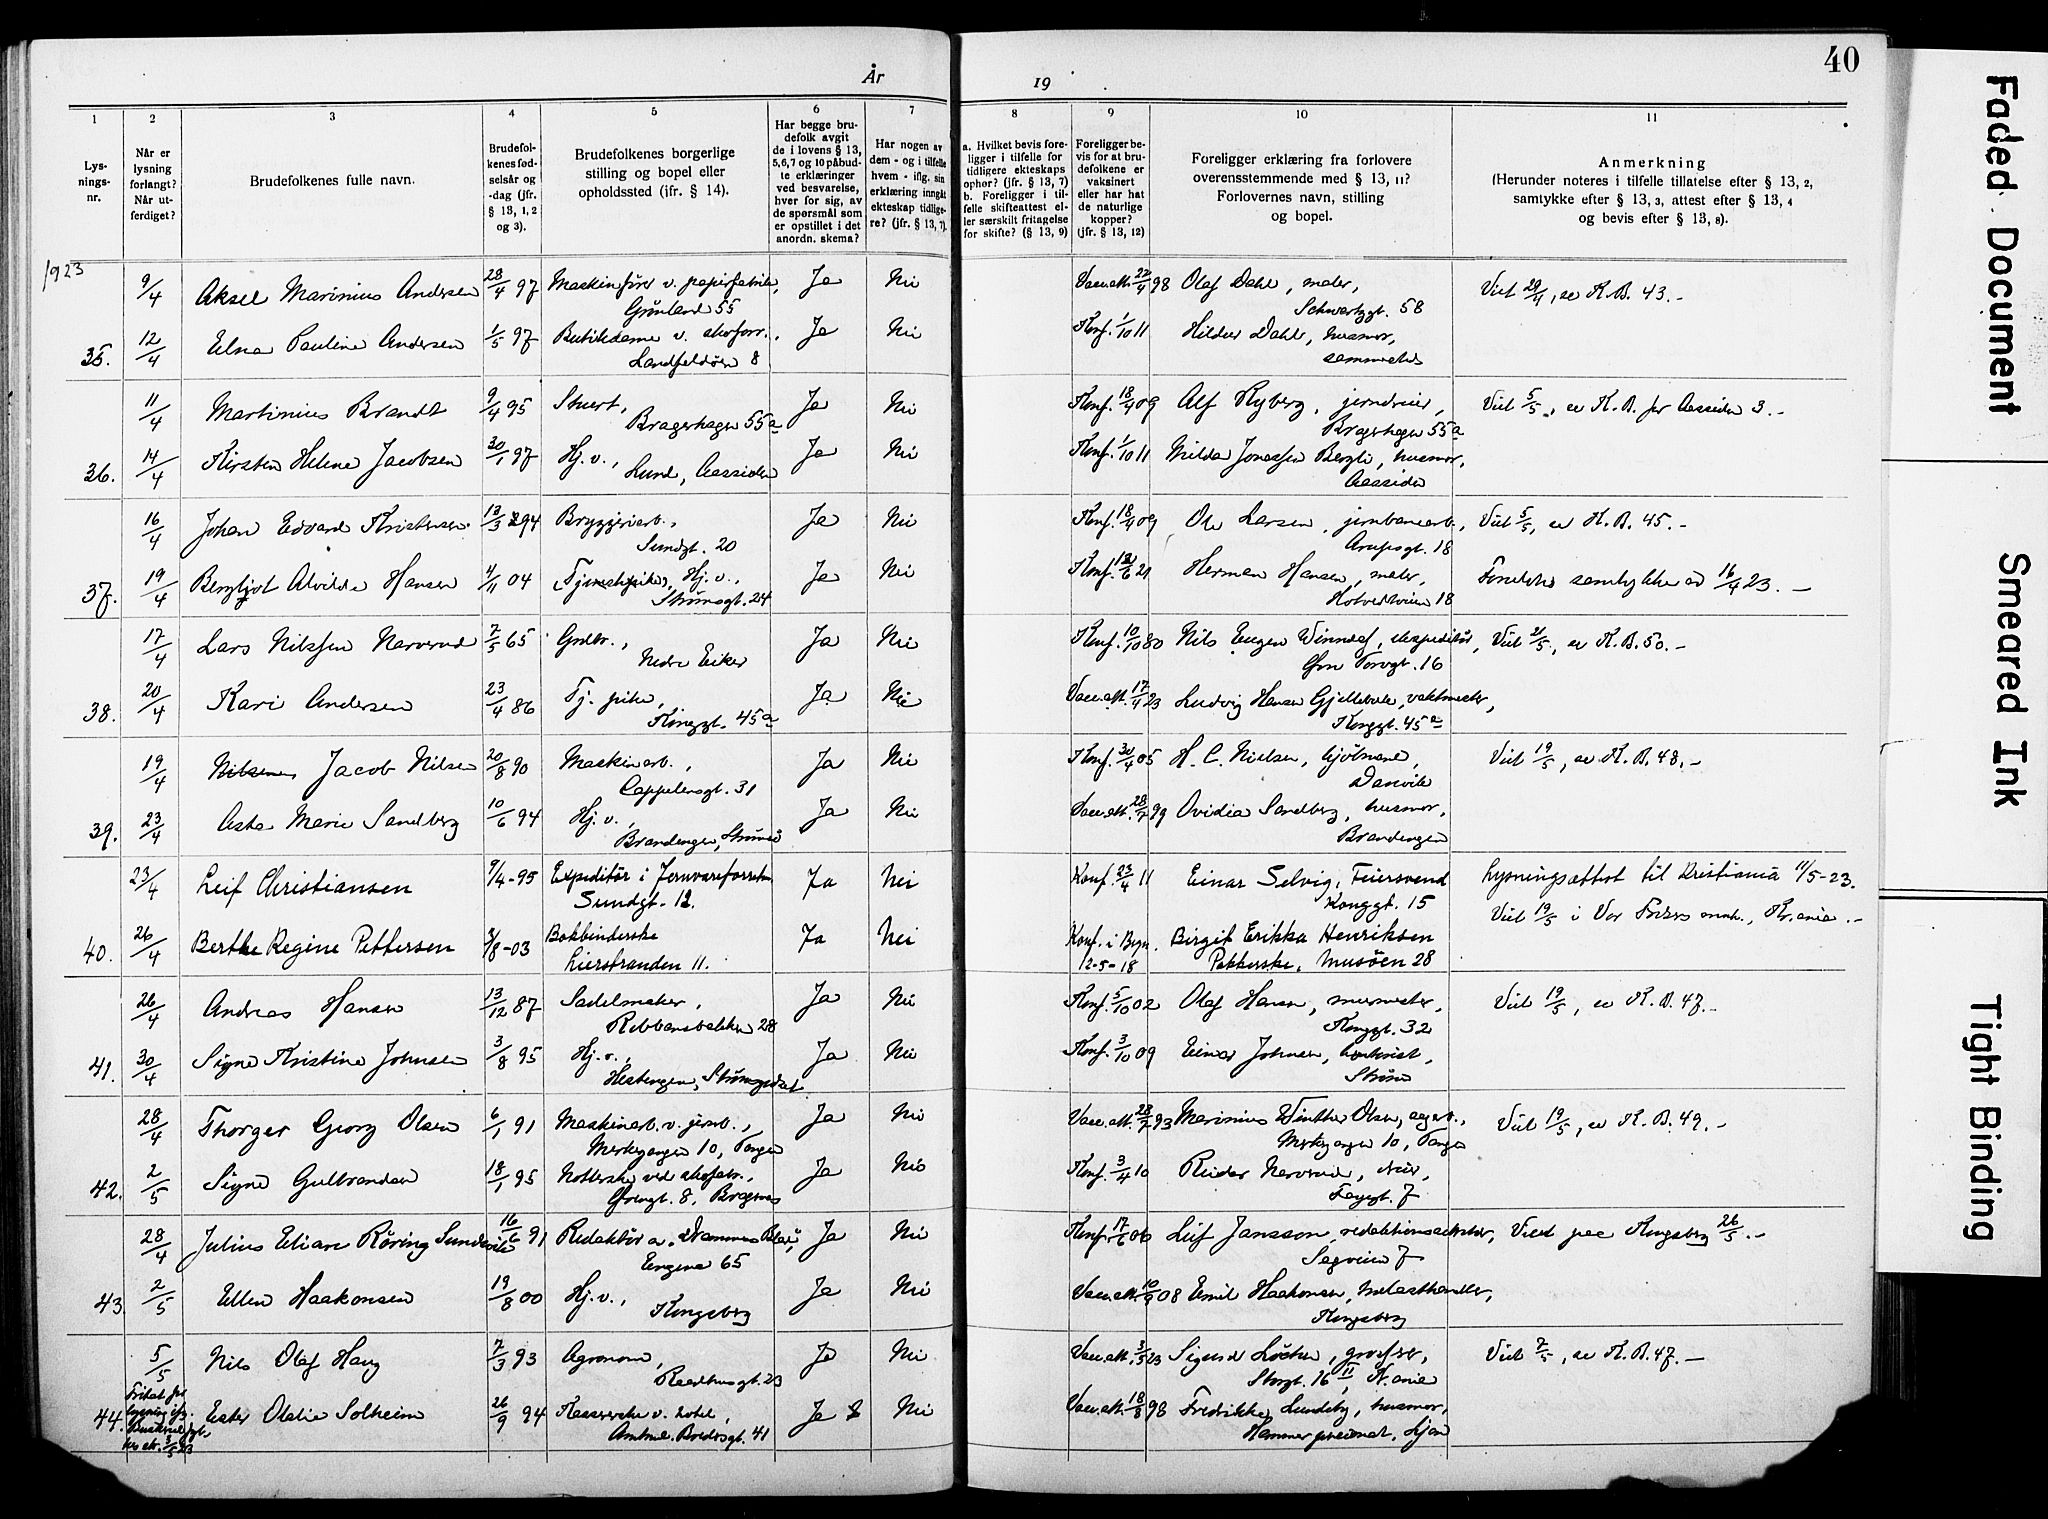 År
19
40
1
2
3
4
5
6
7
8
9
10
11
Lys-
nings-
nr.
Når er
lysning
forlangt?
Når ut-
ferdiget?
Brudefolkenes fulle navn.
Brudefol-
kenes fød-
selsår og
-dag (jfr.
§ 13, 1, 2
og 3).
Brudefolkenes borgerlige
stilling og bopel eller
opholdssted (jfr. § 14).
Har begge bru-
defolk avgit
de i lovens § 13,
5, 6, 7 og 10 påbud-
te erklæringer
ved besvarelse,
hver for sig, av
de spørsmål som
er opstillet i det
anordn. skema?
Har nogen av
dem - og i tilfelle
hvem - iflg. sin
erklæring inngått
ekteskap tidlige-
re? (jfr. § 13, 7).
a. Hvilket bevis fore-
ligger i tilfelle for
tidligere ekteskaps
ophør? (jfr. § 13, 7)
b. Foreligger i til-
felle skifteattest el-
ler særskilt fritagelse
for skifte? (§ 13, 9)
Foreligger be-
vis for at bru-
defolkene er
vaksinert
eller har hat
de naturlige
kopper?
(jfr. § 13, 12)
Foreligger erklæring fra forlovere
overensstemmende med § 13, 11?
Forlovernes navn, stilling
og bopel.
Anmerkning
(Herunder noteres i tilfelle tillatelse efter § 13, 2,
samtykke efter § 13, 3, attest efter § 13, 4
og bevis efter § 13, 8).
1923
9/4 Aksel Marinius Andersen 28/4 97 Maskinfører v. papirfabrik, Ja Nei Vacc.att. 22/4 98 Olaf Dahl, maler, Viet 29/4, se K.B. 43.-
Grønland 55 Schwartzgt. 58
35. 12/4 Elna Pauline Andersen 1/5 97 Butikdame v. skoforr., Ja Nei Konf. 1/10 11 Hildur Dahl, husmor,
Landfaldøen 8 sammesteds
11/4 Martinius Brandt 9/4 95 Stuert, Ja Nei Konf. 18/4 09 Alf Ryberg, jerndreier, Viet 5/5, se K.B. for Aassiden 3.-
Bragerhagen 55a Bragerhagen 55a
36. 14/4 Kirsten Helene Jacobsen 30/1 97 Hj.v., Ja Nei Konf. 1/10 11 Milda Jonassen Bergli, husmor,
Lund, Aassiden Aassiden
16/4 Johan Edvard Kristensen 13/3 94 Bryggeriarb., Ja Nei Konf. 18/4 09 Ole Larsen, jernbanearb., Viet 5/5, se K.B. 45.-
Sundgt. 20 Arupsgt. 18
37. 19/4 Bergljot Alvilde Hansen 4/11 04 Hj.v., Ja Nei Konf. 12/6 21 Herman Hansen, maler, Foreldres samtykke av 16/4 23.-
Strømsgt. 24 Hotvedtveien 18
17/4 Lars Nilssen Narverud 7/5 65 Grdbr., Ja Nei Konf. 10/10 80 Nils Eugen Winndal, ekspeditør, Viet 21/5, se K.B. 50.-
Nedre Eiker Øvre Torvgt. 16
38. 20/4 Kari Andersen 23/4 86 Tj. pike, Ja Nei Vacc.att. 17/4 23 Ludvig Hansen Gjellebæk, vaktmester,
Konggt. 45a Konggt. 45a
19/4 Jacob Nilsen 20/8 90 Maskinarb., Ja Nei Konf. 30/4 05 H. C. Nielsen, hjulmand, Viet 19/5, se K.B. 48.-
Cappelensgt. 31 Danvik
39. 23/4 Asta Marie Sandberg 10/6 94 Hj.v., Ja Nei Vacc.att. 28/7 99 Ovidia Sandberg, husmor,
Brandengen, Strømsø Brandengen
23/4 Leif Christiansen 9/4-95 Expeditör i Jernvareforretn. Ja Nei Konf. 23/4 11 Einar Selvig, Feiersvend Lysningsattest til Kristiania 11/5-23.
Sundgt. 12. Konggt. 15 Viet 19/5 i Vor Frelsers menh., Kr.ania.-
40. 26/4 Berthe Regine Pettersen 3/8-03 Bokbinderske Ja Nei Konf. i Begn. Birgit Erikka Henriksen
Lierstranden 11. 12-5-18 Pakkerske, Musöen 28
26/4 Andreas Hansen 13/12 87 Sadelmaker, Ja Nei Konf. 5/10 02 Olaf Hansen, murmester, Viet 19/5, se K.B. 47.-
Ribbansbakken 28 Konggt. 32
41. 30/4 Signe Kristine Johnsen 3/8 95 Hj.v., Ja Nei Konf. 3/10 09 Einar Johnsen, kontorist,
Hestengen, Strømsgodset Strømsø
28/4 Thorger Georg Olsen 6/1 91 Maskinarb. v. jernb., Ja Nei Vacc.att. 28/7 93 Marinius Winther Olsen, sagarb., Viet 19/5, se K.B. 49.-
Merkegangen 10, Tangen Merkegangen 10, Tangen
42. 2/5 Signe Gulbrandsen 18/1 95 Natlerske ved skofabr., Ja Nei Konf. 3/4 10 Reidar Narverud, dreier,
Grevgt. 8, Bragernes Fayegt. 7
28/4 Julius Eliare Röring Sundseth 16/6 91 Redaktör a. "Drammens Blad", Ja Nei Konf. 17/6 06 Leif Jansson, redaktionssekretær, Viet paa Kongsberg 26/5.-
Engene 65 Sagveien 7
43. 2/5 Ellen Haakonsen 19/8 00 Hj.v., Ja Nei Vacc.att. 10/9 08 Emil Haakonsen, trelasthandler,
Kongsberg Kongsberg
5/5 Nils Olaf Haug 7/3 93 Agronom, Ja Nei Vacc.att. 3/5 23 Sigurd Løchen, grosser, Viet 7/5, se K.B. 47.-
Raadhusgt. 23 Storgt. 16 II, Kr.ania
44. Fritat for lysning ifg. Buskerud fylkes skr. 3/5 23 Ester Otilie Solheim 26/9 94 Kassererske v. hotel, Ja Nei Vacc.att. 18/8 98 Fredrikke Lundeby, husmor,
Amtmd. Blomsgt. 41 Hammer pensionat, Ljan
Faded Document
Smeared Ink
Tight Binding